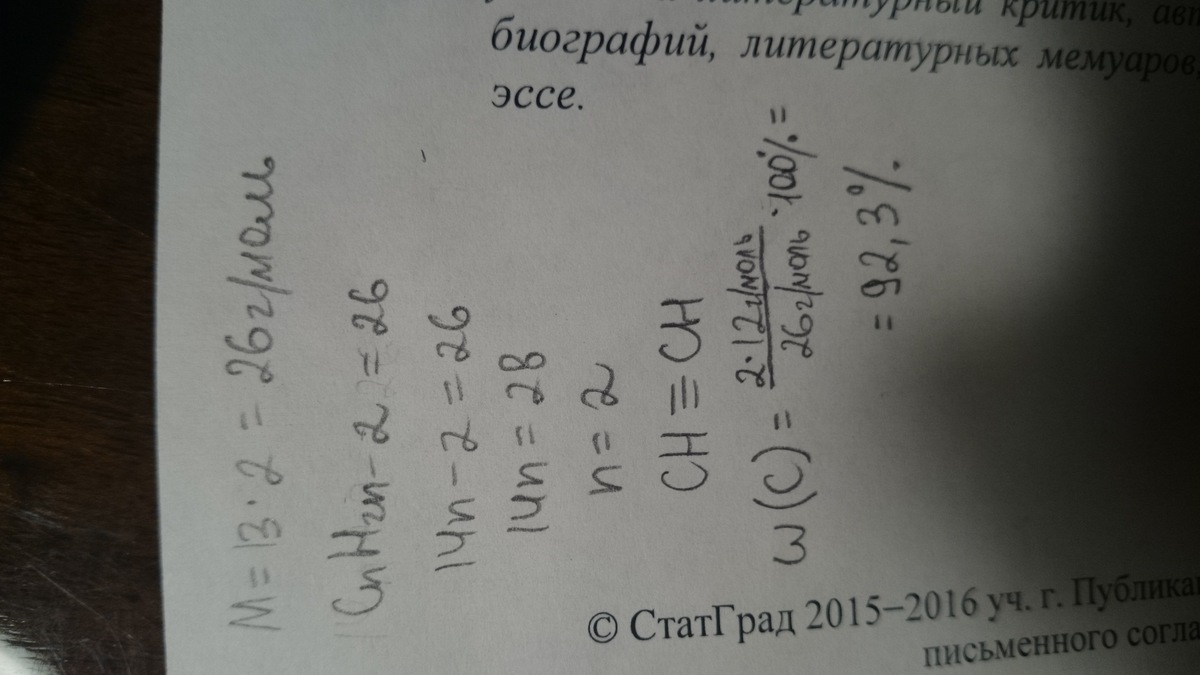 литературный критик, авт
биографий, литературных мемуаров,
эссе.
M = 13 · 2 = 26 г/моль
CnH2n-2 = 26
14n - 2 = 26
14n = 28
n = 2
CH ≡ CH
ω(C) = 2 · 12 г/моль / 26 г/моль · 100% =
= 92,3%.
© СтатГрад 2015–2016 уч. г. Публика
письменного согла